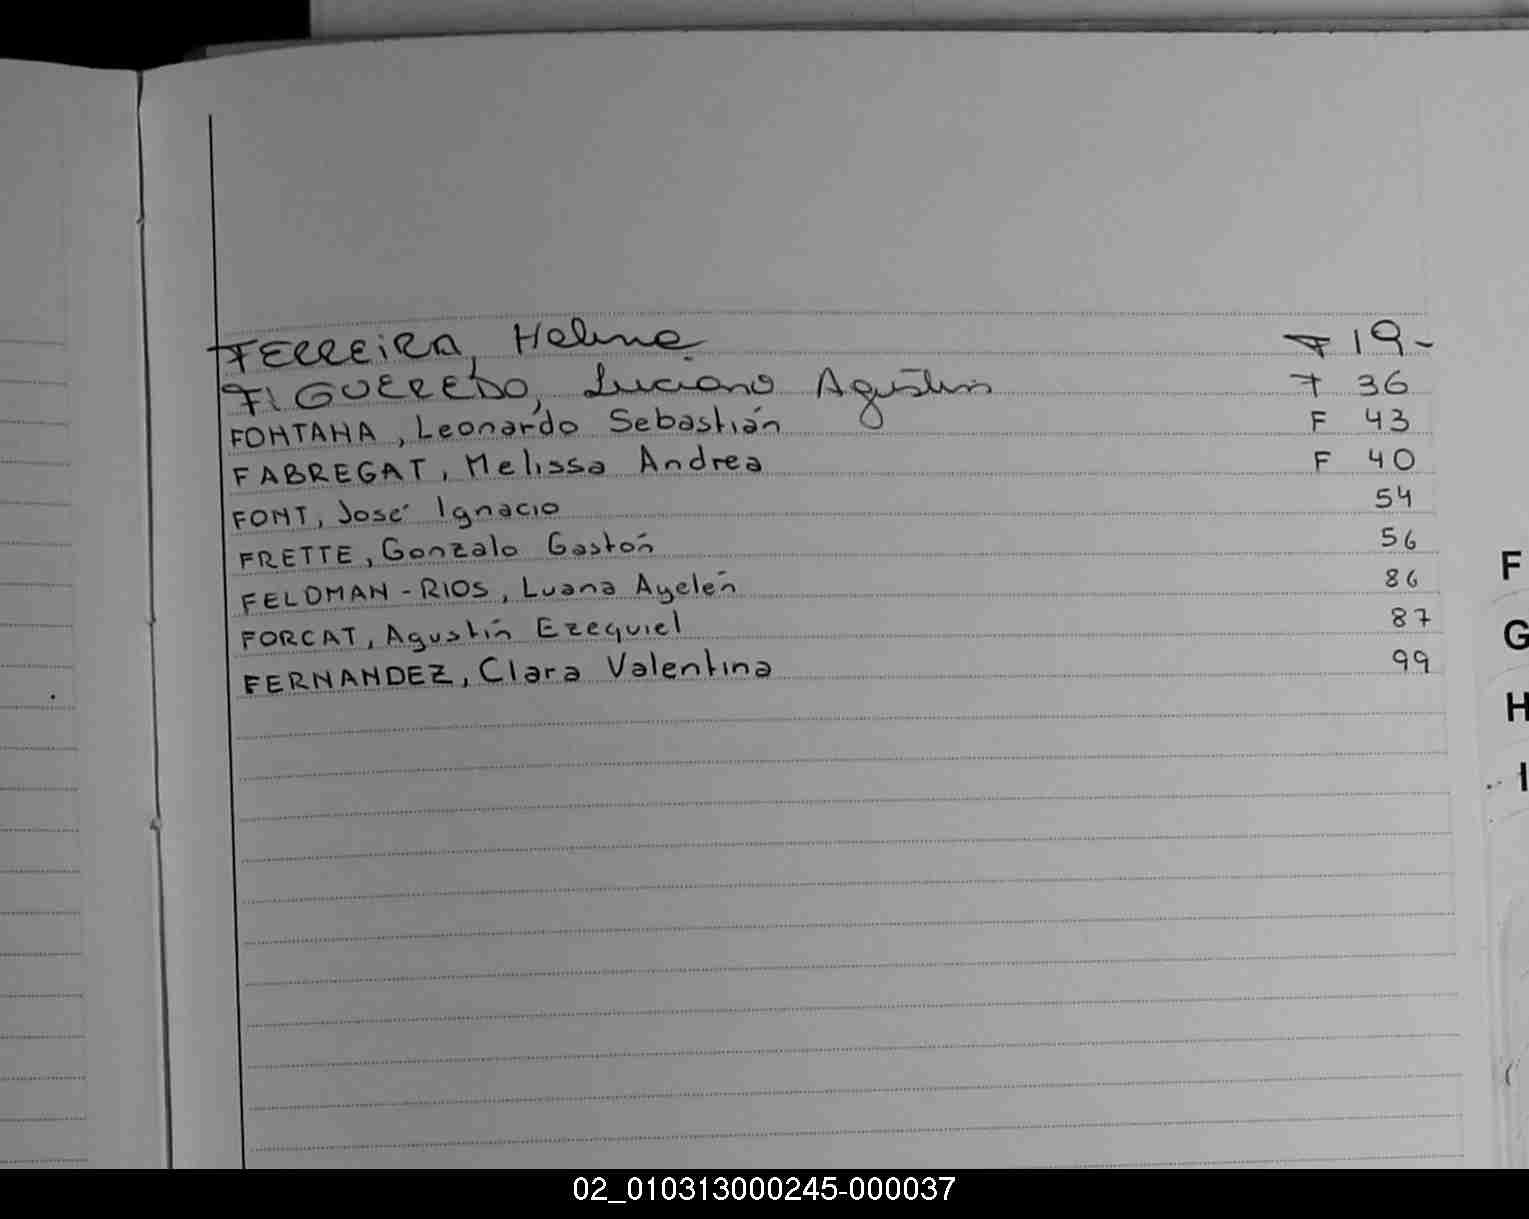 FERREIRA, Helena F 19-
FIGUEREDO, Luciano Agustin F 36
FONTANA, Leonardo Sebastián F 43
FABREGAT, Melissa Andrea F 40
FONT, José Ignacio 54
FRETTE, Gonzalo Gastón 56
FELDMAN-RIOS, Luana Ayelén 86
FORCAT, Agustín Ezequiel 87
FERNANDEZ, Clara Valentina 99
F
G
H
I
02_010313000245-000037